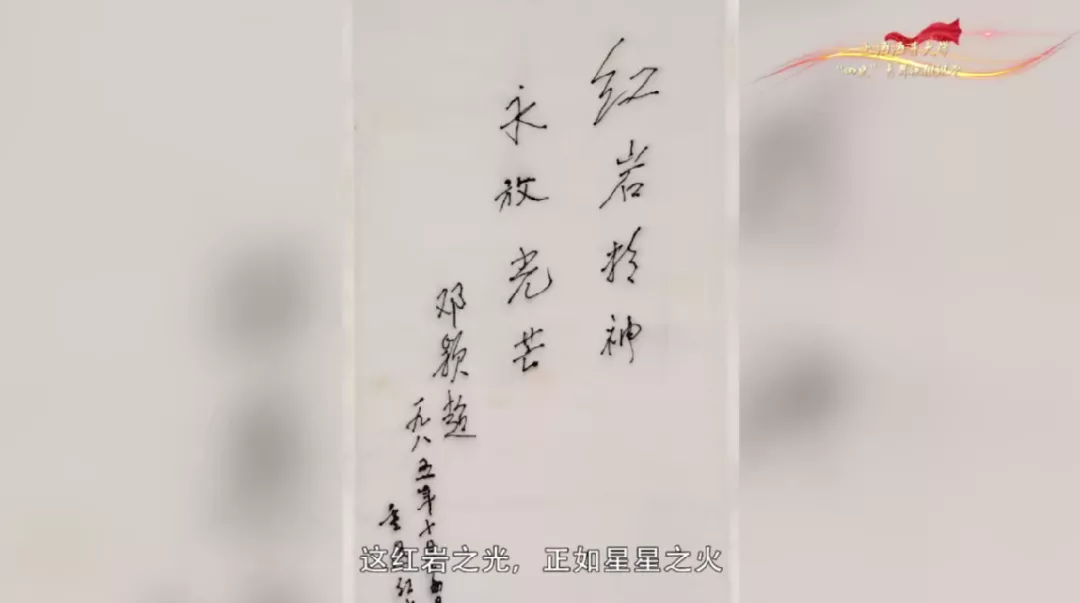 红岩精神
永放光芒
邓颖超
一九八五年十月
重
红
这红岩之光，正如星星之火